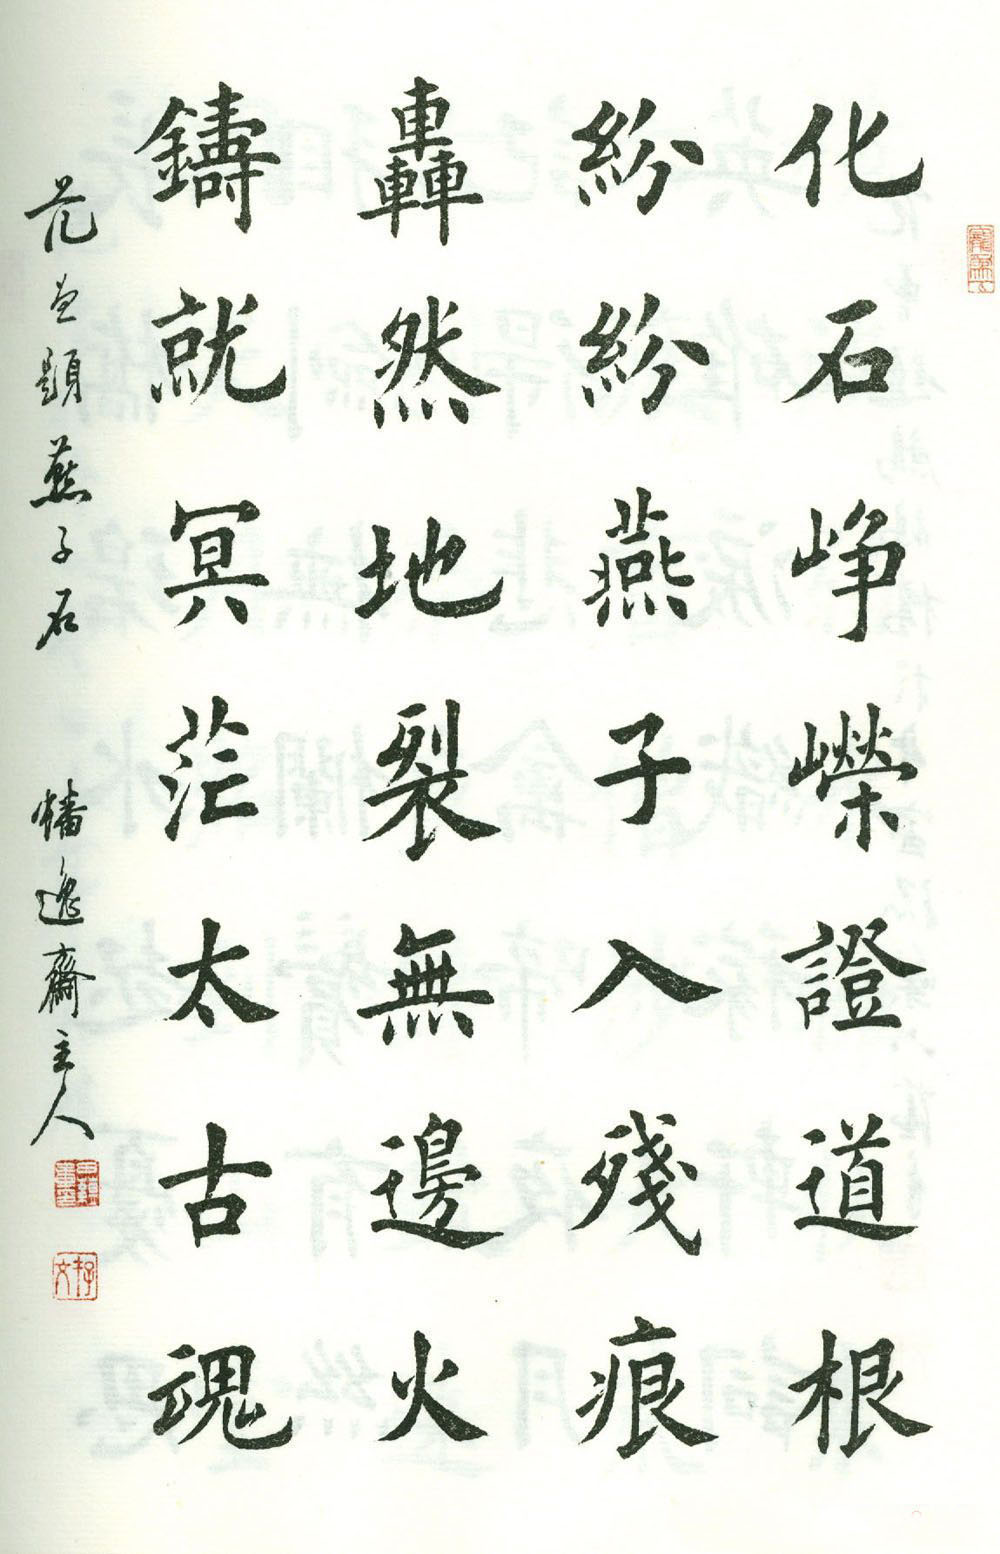 化石崢嶸證道根
紛紛燕子入殘痕
轟然地裂無邊火
鑄就冥茫太古魂
范曾題燕子石 幡逸齋主人